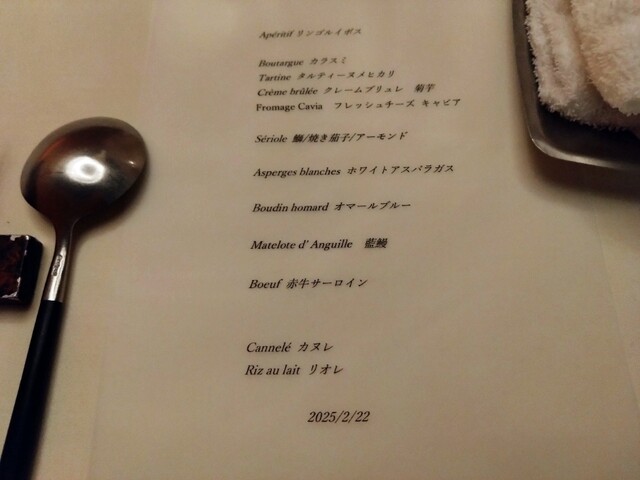 Apéritif リンゴルイボス
Boutargue カラスミ
Tartine タルティーヌメヒカリ
Crème brûlée クレームブリュレ 菊芋
Fromage Cavia フレッシュチーズ キャビア
Sériole 鰤/焼き茄子/アーモンド
Asperges blanches ホワイトアスパラガス
Boudin homard オマールブルー
Matelote d' Anguille 藍鰻
Boeuf 赤牛サーロイン
Cannelé カヌレ
Riz au lait リオレ
2025/2/22